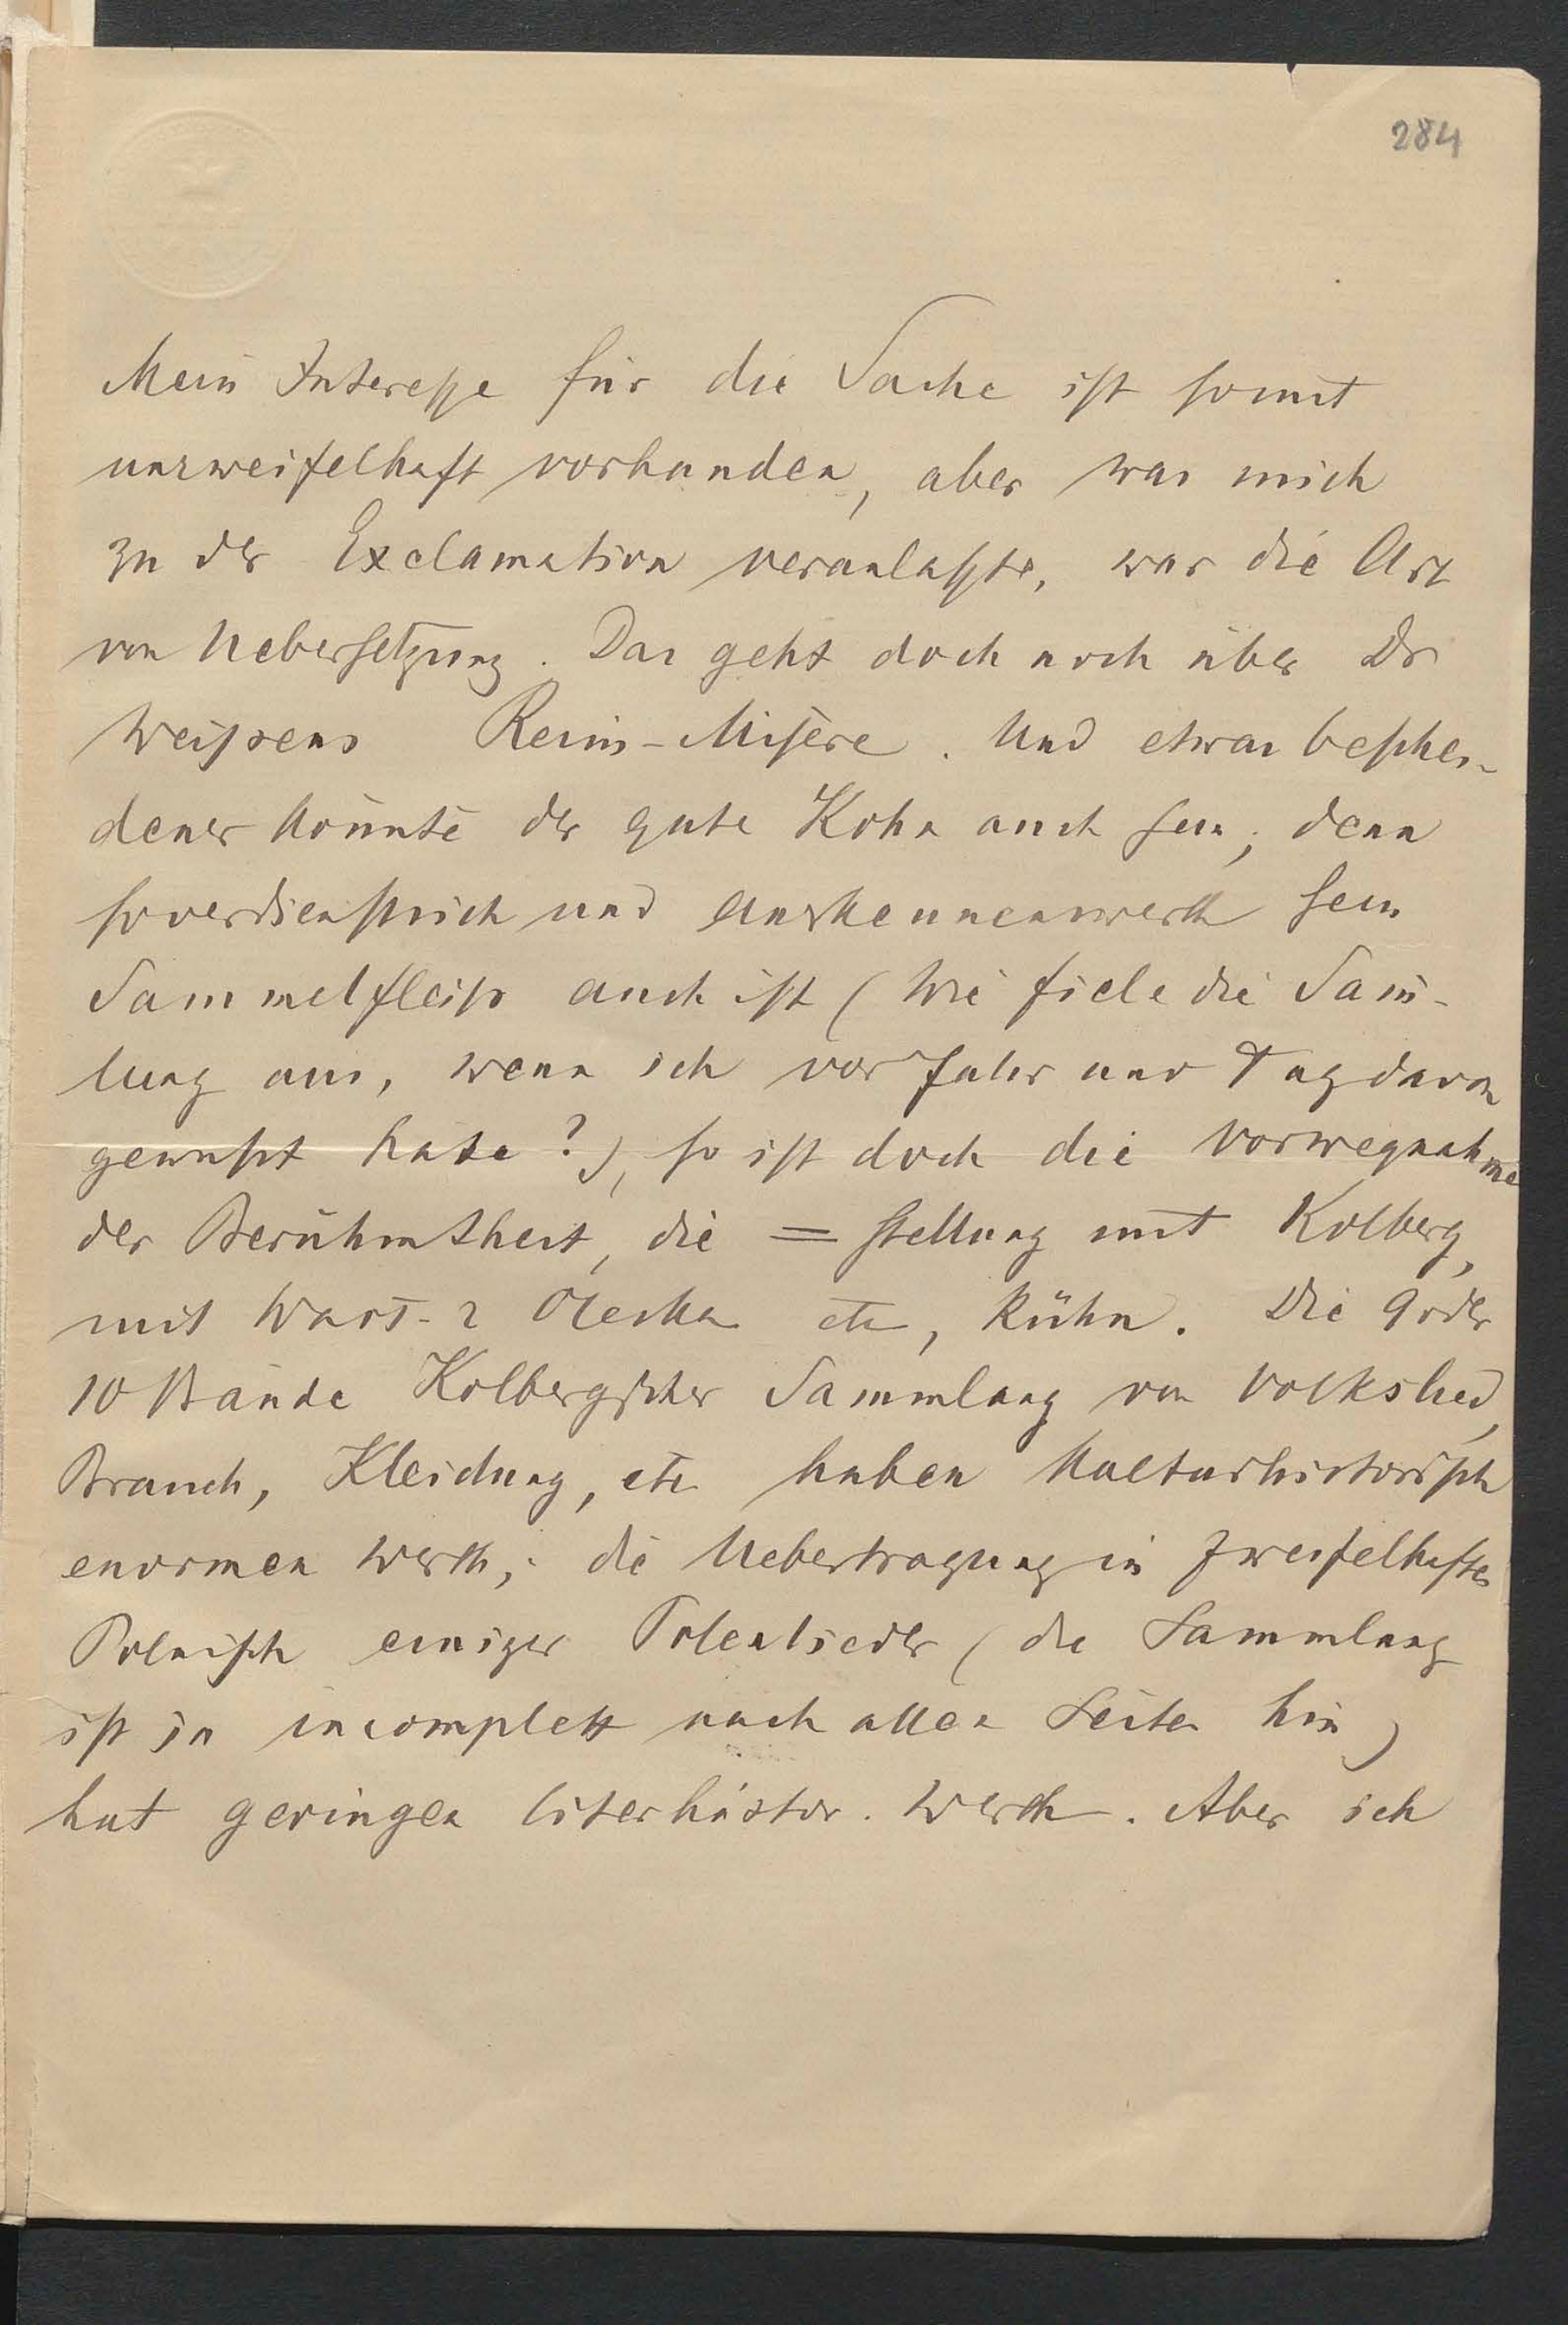 284
Mein Interesse für die Sache ist somit
unzweifelhaft vorhanden, aber was mich
zu der Exclamation veranlaßte, war die Art
von Uebersetzung. Das geht doch noch über Dr
Weißens Reim-Misere. Und etwas beschei-
dener könnte der gute Kohn auch sein; denn
so verdienstlich und anerkennenswerth sein
Sammelfleiß auch ist (wie fiele die Sam̄-
lung aus, wenn ich vor Jahr und Tag davon
gewußt hätte?), so ist doch die Vorwegnahme
der Berühmtheit, die = stellung mit Kolberg,
mit Wacł. z Oleska etc, kühn. Die 9 oder
10 Bände Kolbergscher Sammlung von Volkslied,
Brauch, Kleidung, etc haben kulturhistorisch
enormen Werth; die Uebertragung in zweifelhaftes
Polnisch einiger Polenlieder (die Sammlung
ist ja incomplett nach allen Seiten hin)
hat geringen literhistor. Werth. Aber ich